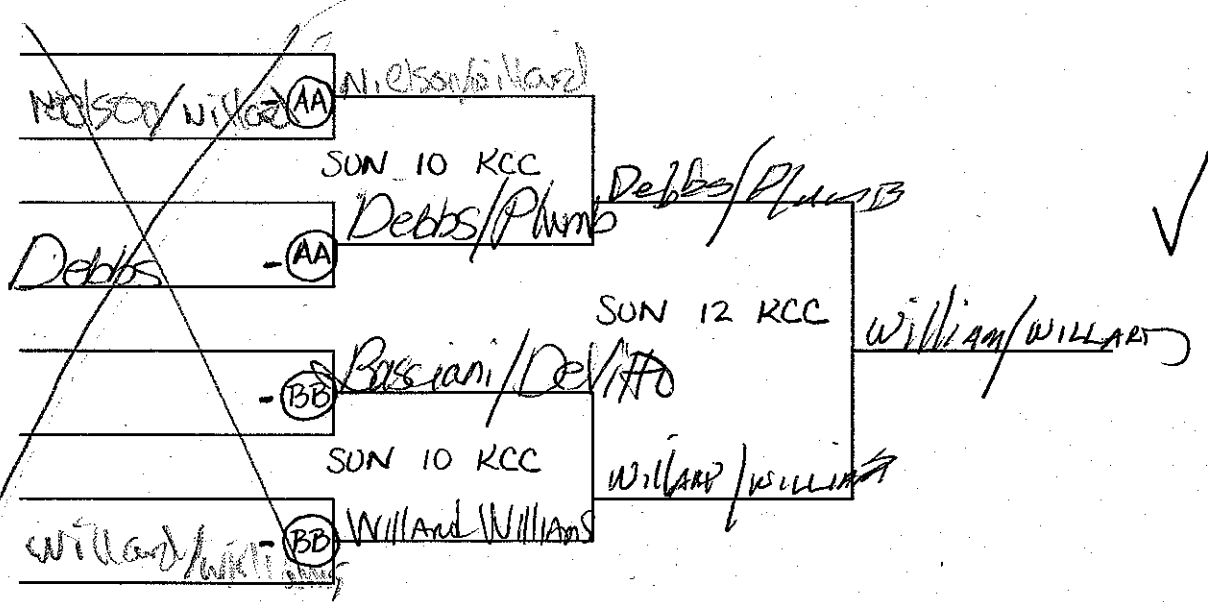 Nielson/Willard
AA
SUN 10 KCC
Debbs/Plumb
Debbs/Plumb
Debbs
- AA
SUN 12 KCC
William/WILLARD
Bassiani/DeVitto
- BB
SUN 10 KCC
Willard/Williams
Willard Williams
- BB
Willard/Williams